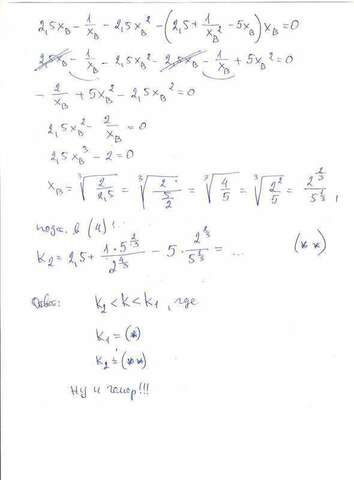 2,5x_B - 1/x_B - 2,5x_B² - (2,5 + 1/x_B² - 5x_B) x_B = 0
2,5x_B - 1/x_B - 2,5x_B² - 2,5x_B - 1/x_B + 5x_B² = 0
- 2/x_B + 5x_B² - 2,5x_B² = 0
2,5x_B² - 2/x_B = 0
2,5x_B³ - 2 = 0
x_B = ∛(2/2,5) = ∛(2/(5/2)) = ∛(4/5) = ∛(2²/5) = 2^(2/3)/5^(1/3) ,
подст. в (4):
K₂ = 2,5 + 1·5^(2/3)/2^(4/3) - 5 · 2^(2/3)/5^(1/3) = ... (**)
Ответ: K₂ < K < K₁, где
K₁ = (*)
K₂ = (**)
Ну и гомор!!!